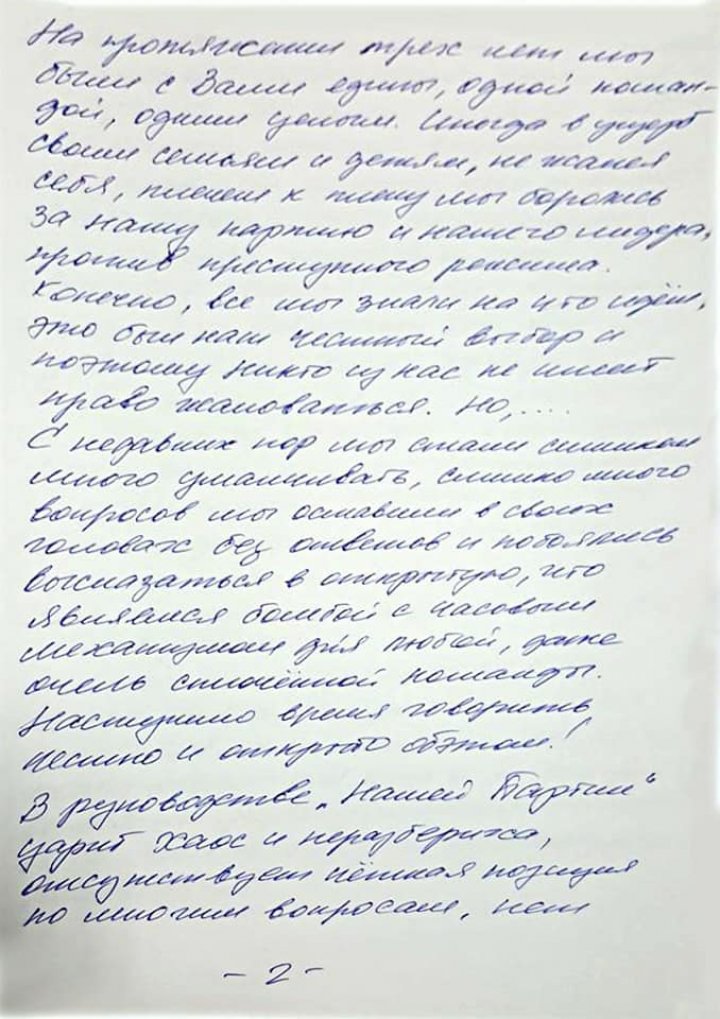 На протяжении трех лет мы
были с Вами едины, одной коман-
дой, одним целым. Иногда в ущерб
своим семьям и детям, не жалея
себя, плечем к плечу мы боролись
за нашу партию и нашего лидера,
против преступного режима.
Конечно, все мы знали на что идём,
это был наш честный выбор и
поэтому никто из нас не имеет
право жаловаться. Но,....
С недавних пор мы стали слишком
много умалчивать, слишко много
вопросов мы оставили в своих
головах без ответов и побоялись
высказаться в открытую, что
является бомбой с часовым
механизмом для любой, даже
очень сплочённой команды.
Наступило время говорить
честно и открыто обэтом!
В руководстве „Нашей Партии"
царит хаос и неразбериха,
отсутствует чёткая позиция
по многим вопросам, нет
- 2 -